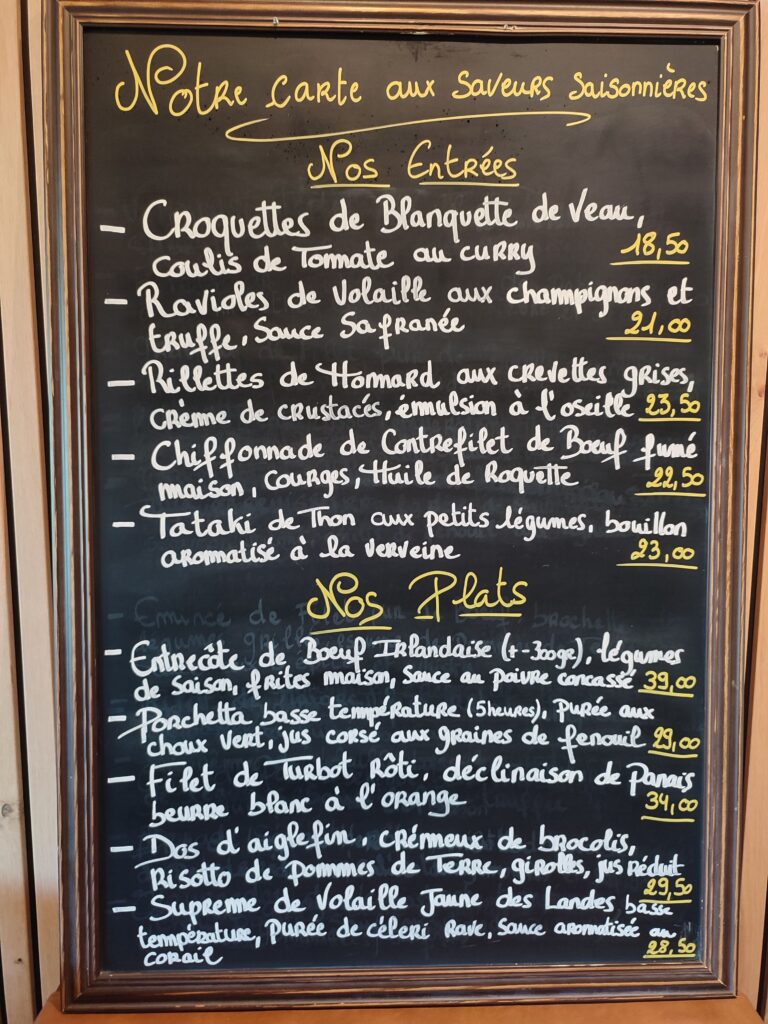 Notre carte aux saveurs saisonnières
Nos Entrées
- Croquettes de Blanquette de Veau,
coulis de Tomate au curry 18,50
- Ravioles de Volaille aux champignons et
truffe, Sauce Safranée 21,00
- Rillettes de Homard aux crevettes grises,
crème de crustacés, émulsion à l'oseille 23,50
- Chiffonnade de Contrefilet de Boeuf fumé
maison, courges, Huile de Roquette 22,50
- Tataki de Thon aux petits légumes, bouillon
aromatisé à la verveine 23,00
Nos Plats
- Entrecôte de Boeuf Irlandaise (+-300ge), légumes
de saison, frites maison, sauce au poivre concassé 39,00
- Porchetta basse température (5heures), purée aux
choux vert, jus corsé aux graines de fenouil 29,00
- Filet de Turbot Rôti, déclinaison de Panais
beurre blanc à l'orange 34,00
- Dos d'aiglefin, crémeux de brocolis,
Risotto de pommes de Terre, girolles, jus Réduit
29,50
- Supreme de Volaille Jaune des Landes basse
température, purée de céleri Rave, Sauce aromatisée au
corail 28,50